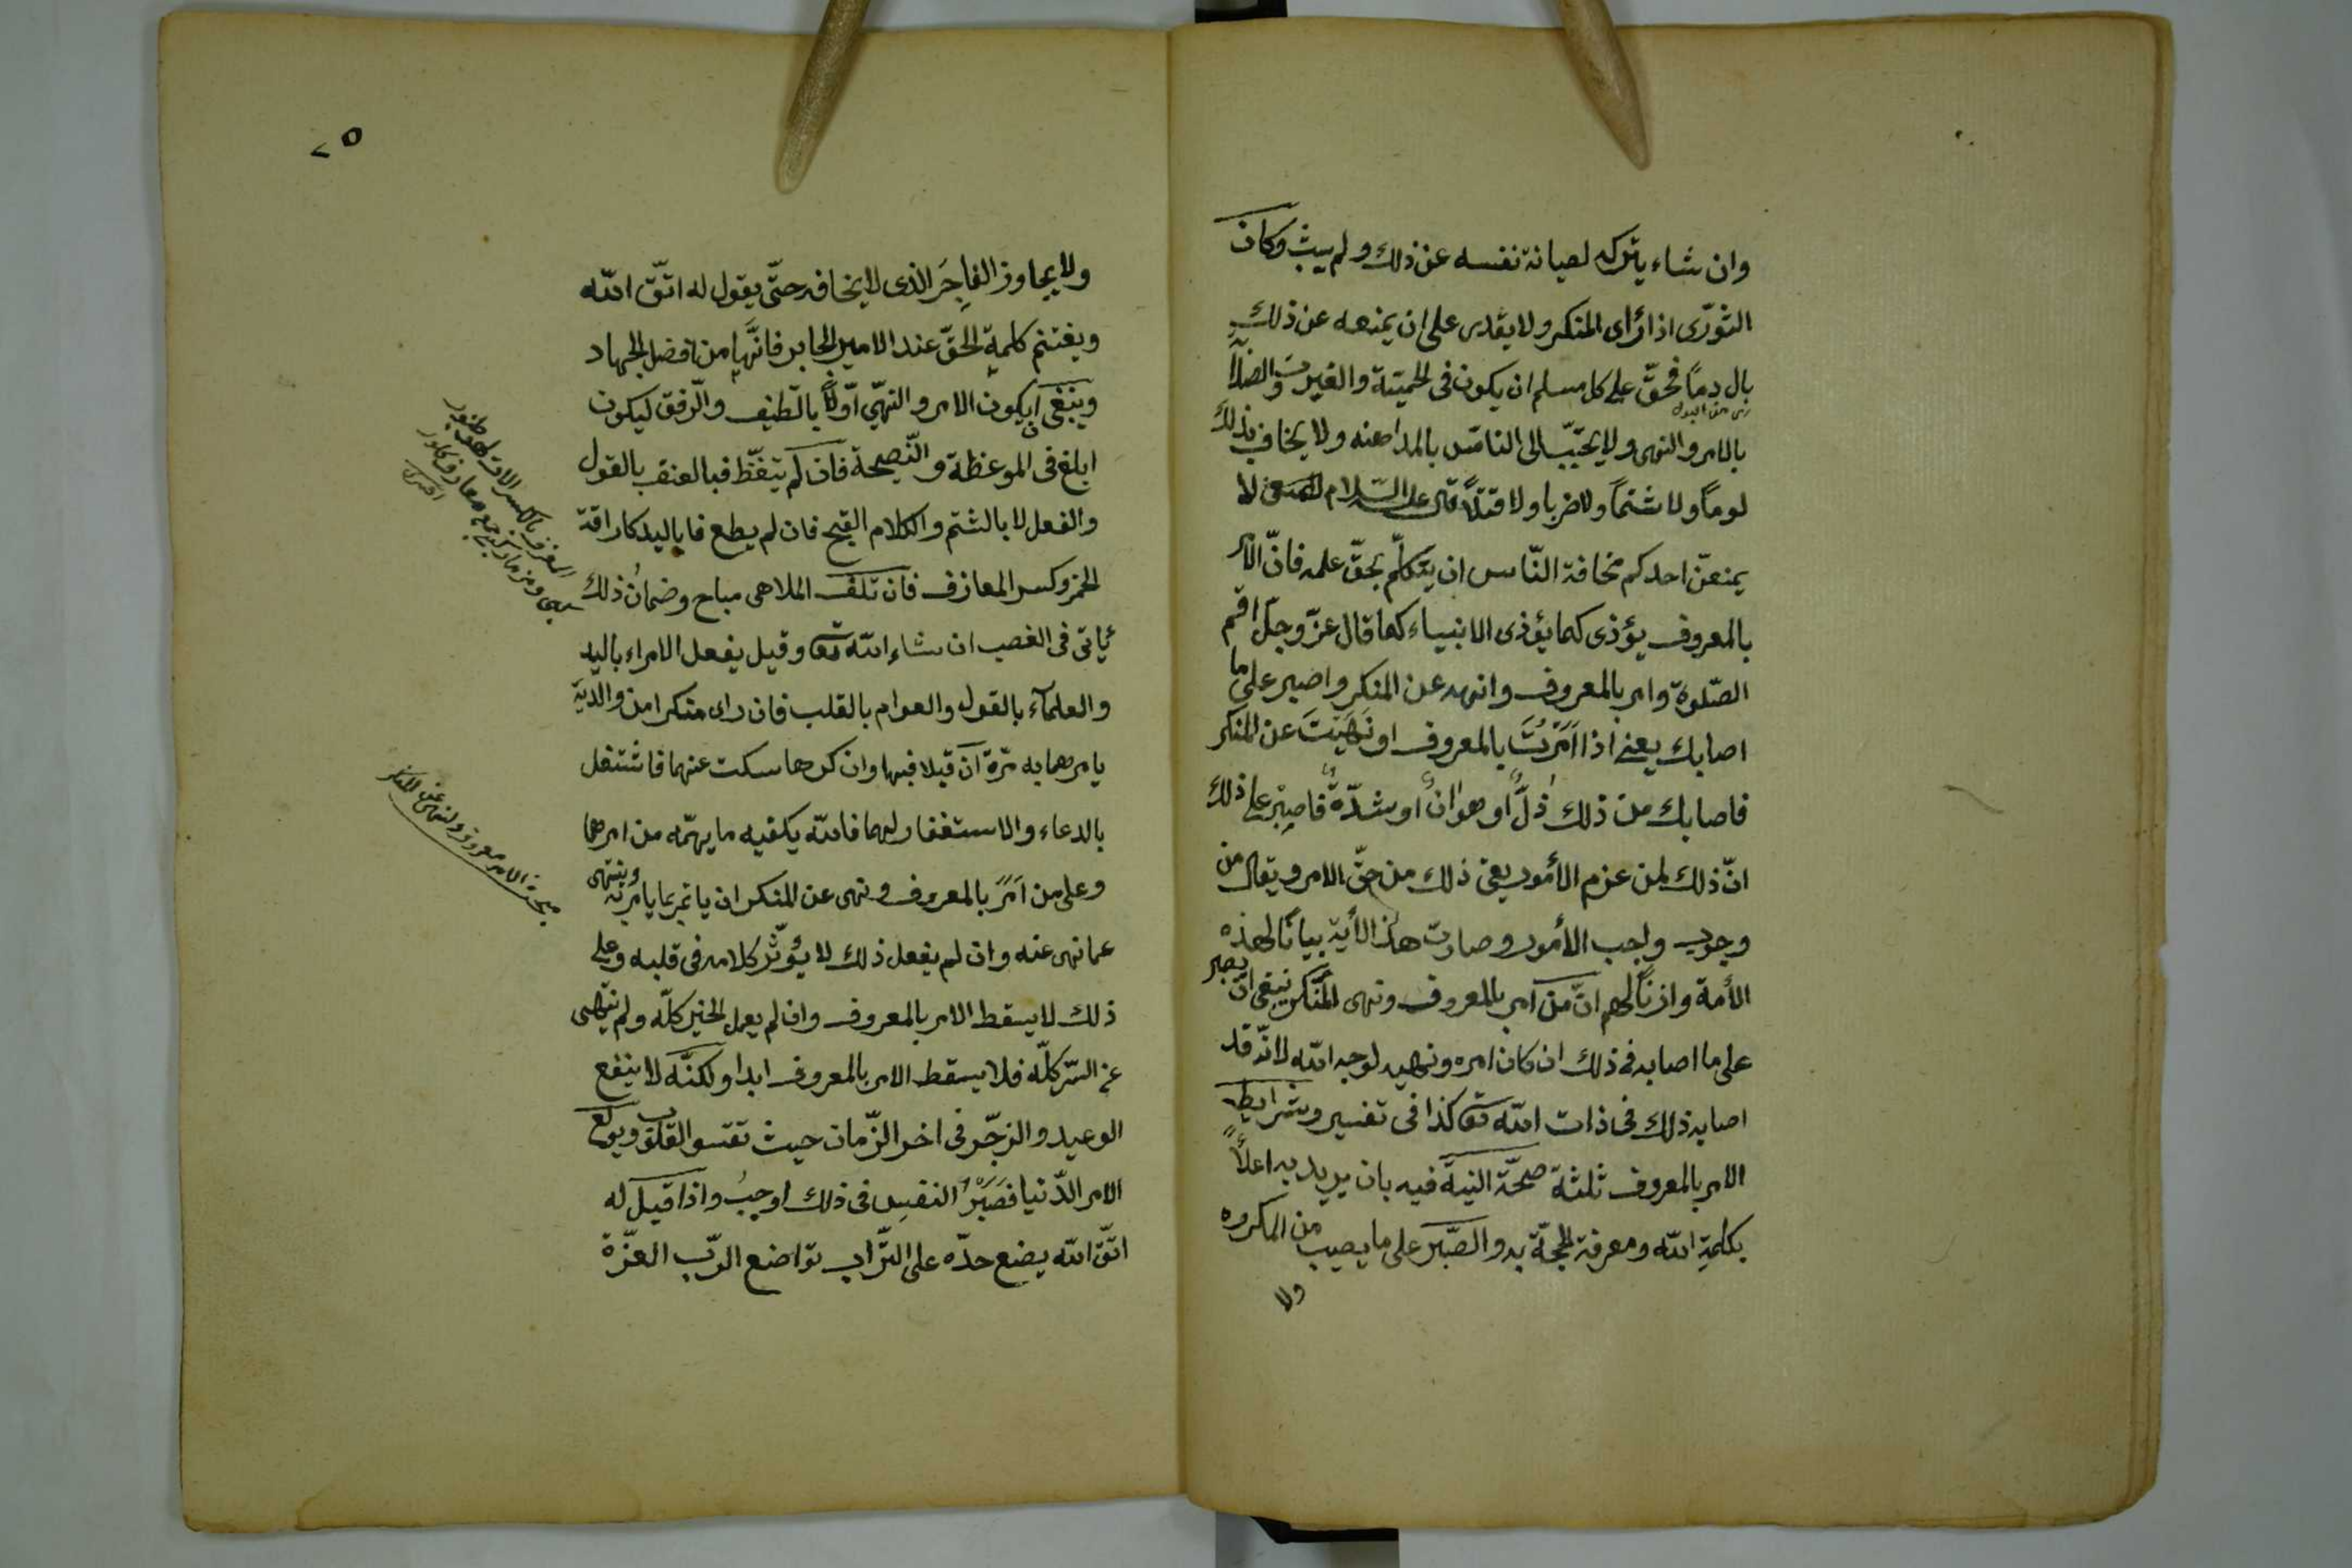 وان شاء يتركه لصيانة نفسه عن ذلك ولم يبث وكان
الثورّى اذا رأى المنكر ولا يقدر على ان يمنعه عن ذلك
بال دمًا فحقّ على كل مسلم ان يكون فى الحميّة والغيرت والصلاًبة
من البول
بالامر والنهى ولا يحبّب الى الناس بالمداهنه ولا يخاف بذلك
لومًا ولا شتمًا ولا ضربا ولا قتلاً قال عليه السّلام لا
يمنعنّ احدكم مخافة النّاس ان يتكلّم بحقّ علمه فانّ الآمر
بالمعروف يؤذى كما يؤذى الانبياء كما قال عزّ وجلّ اقم
الصّلوة وامر بالمعروف وانهه عن المنكر واصبر على ما
اصابك يعنى اذا اَمَرْتَ بالمعروف او نَهَيْتَ عن المنكر
فاصابك من ذلك ذلٌّ او هوانٌ او شدّةٌ فاصبِرْ على ذلك
انّ ذلك لمن عزم الأمور يعنى ذلك من حقّ الامر ويقال من
وجوب واجب الأمور وصارت هذا الأية بيانًا لهذه
الأمة واذنًا لهم انّ من آمر بالمعروف ونهى المُنكر ينبغى ان يصبر
على ما اصابه فى ذلك ان كان امره ونهيه لوجه الله لانّه قد
اصابه ذلك فى ذات الله تعا كذا فى تفسير وشرايط
الامر بالمعروف ثلثة صحّة النيّة فيه بان يريد به اعلاًء
بكلمةِ الله ومعرفة الحجّة به والصَّبْر على ما يصيب من المكروه
ولا
٢٥
ولا يجاوز الفاجِرَ الذى لا يخافه حتّى يقول له اتّق الله
ويغتنم كلمة الحقّ عند الامير الجابر فانّها من افضل الجهاد
وينبغى ان يكون الامر والنهى اوّلاً بالتّطيف والرّفق ليكون
ابلغ فى الموعظة والنّصيحة فان لم يتغظ فبالعنف بالقول
والفعل لا بالشتم والكلام القبيح فان لم يطع فاباليد كاراقة
الخمر وكسر المعازف فان تلف الملاهى مباح وضمان ذلك
ئاتى فى الغصب ان شاء الله تعا وقيل يفعل الامراء باليد
والعلمآء بالقول والعوام بالقلب فان راى منكرا من والديه
يامرهما به مرّة ان قبلا فبها وان كرها سكت عنهما فاشتغل
بالدعاء والاستغفار لهما فالله يكفيه ما يهمّه من امرهما
وعلى من اَمَرَ بالمعروف ونهى عن المنكر ان ياتمر بما يامر به وينتهى
عما نهى عنه وان لم يفعل ذلك لا يؤثّر كلامه فى قلبه وعلى
ذلك لا يسقط الامر بالمعروف وان لم يعمل الخير كلّه ولم ينتهى
عن الشّر كلّه فلا يسقط الامر بالمعروف ابدا ولكنّه لا ينفع
الوعيد والزجّر فى اخر الزّمان حيث تقسو القلوب ويولع
الامر الدّنيا فصَبْرُ النفسِ فى ذلك اوجبُ واذا قيل له
اتّق الله يضع خدّه على التّراب تواضع الربّ العزّة
المعزف بالكسر
اختري
مبحث الامر معروف والنهى عن المنكر